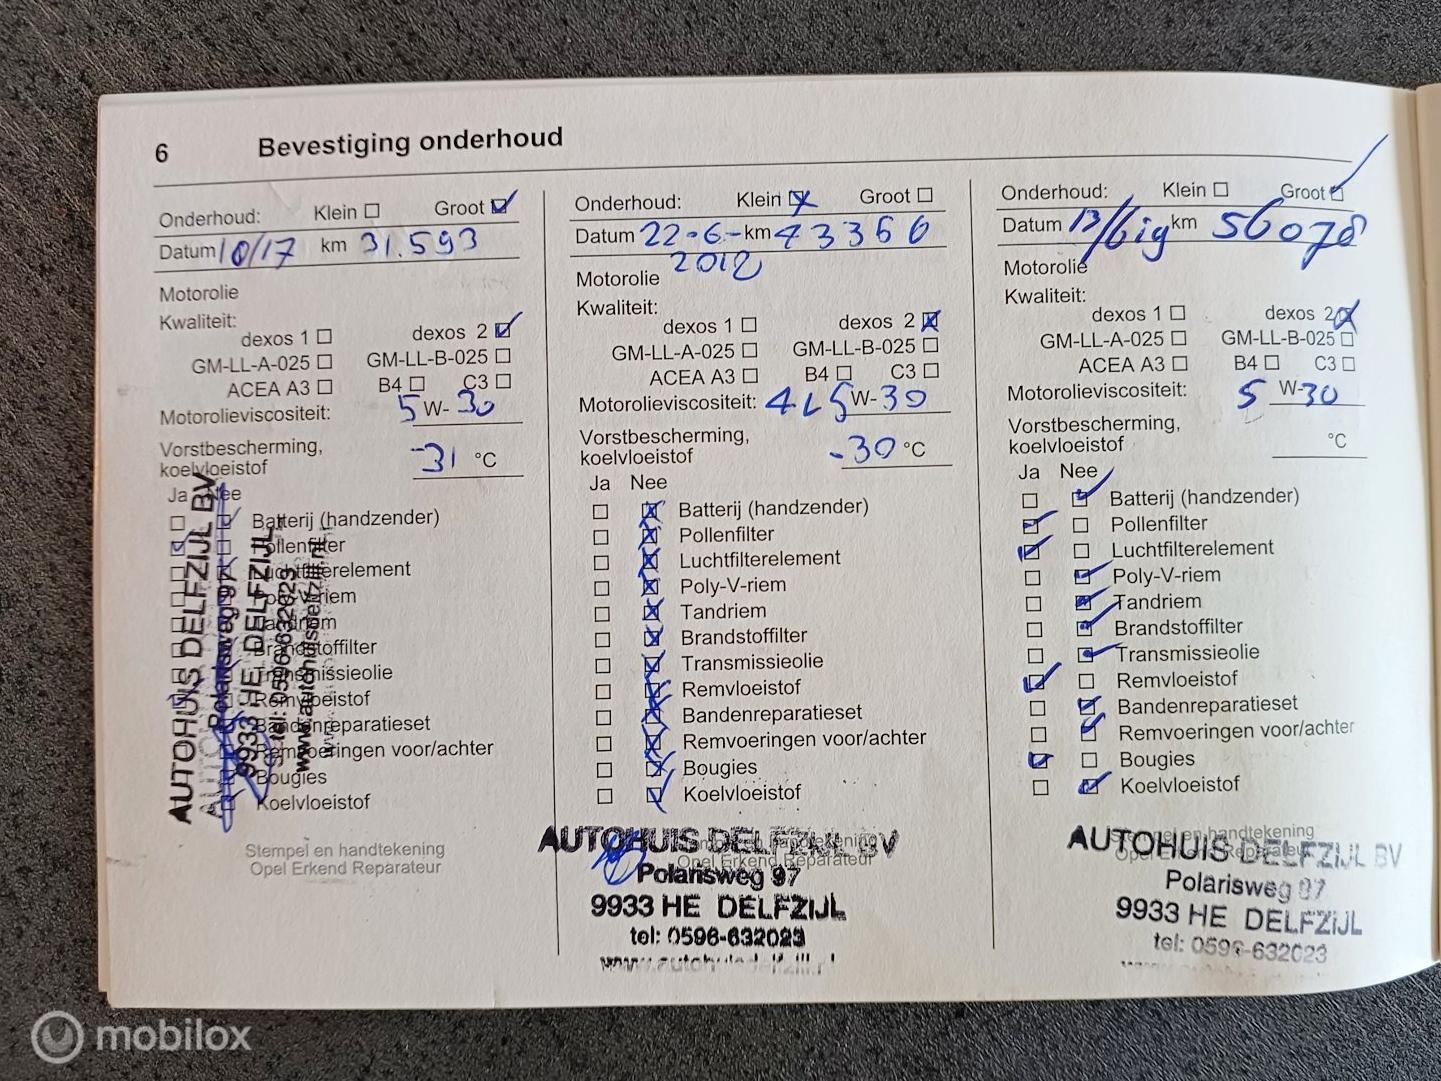 6 Bevestiging onderhoud
Onderhoud: Klein Groot
Datum 10/17 km 31.593
Motorolie
Kwaliteit:
dexos 1 dexos 2
GM-LL-A-025 GM-LL-B-025
ACEA A3 B4 C3
Motorolieviscositeit: 5 W- 30
Vorstbescherming,
koelvloeistof -31 °C
Ja Nee
Batterij (handzender)
Pollenfilter
Luchtfilterelement
Poly-V-riem
Tandriem
Brandstoffilter
Transmissieolie
Remvloeistof
Bandenreparatieset
Remvoeringen voor/achter
Bougies
Koelvloeistof
AUTOHUIS DELFZIJL BV
Polarisweg 97
9933 HE DELFZIJL
tel: 0596-632023
www.autohuisdelfzijl.nl
Stempel en handtekening
Opel Erkend Reparateur
Onderhoud: Klein Groot
Datum 22-6- km 43360
2018
Motorolie
Kwaliteit:
dexos 1 dexos 2
GM-LL-A-025 GM-LL-B-025
ACEA A3 B4 C3
Motorolieviscositeit: 4L5 W- 30
Vorstbescherming,
koelvloeistof -30 °C
Ja Nee
Batterij (handzender)
Pollenfilter
Luchtfilterelement
Poly-V-riem
Tandriem
Brandstoffilter
Transmissieolie
Remvloeistof
Bandenreparatieset
Remvoeringen voor/achter
Bougies
Koelvloeistof
AUTOHUIS DELFZIJL BV
Opel Erkend Reparateur
Polarisweg 97
9933 HE DELFZIJL
tel: 0596-632023
Onderhoud: Klein Groot
Datum 13/6 19 km 56078
Motorolie
Kwaliteit:
dexos 1 dexos 2
GM-LL-A-025 GM-LL-B-025
ACEA A3 B4 C3
Motorolieviscositeit: 5 W- 30
Vorstbescherming,
koelvloeistof °C
Ja Nee
Batterij (handzender)
Pollenfilter
Luchtfilterelement
Poly-V-riem
Tandriem
Brandstoffilter
Transmissieolie
Remvloeistof
Bandenreparatieset
Remvoeringen voor/achter
Bougies
Koelvloeistof
en handtekening
AUTOHUIS DELFZIJL BV
Polarisweg 97
9933 HE DELFZIJL
tel: 0596-632023
mobilox